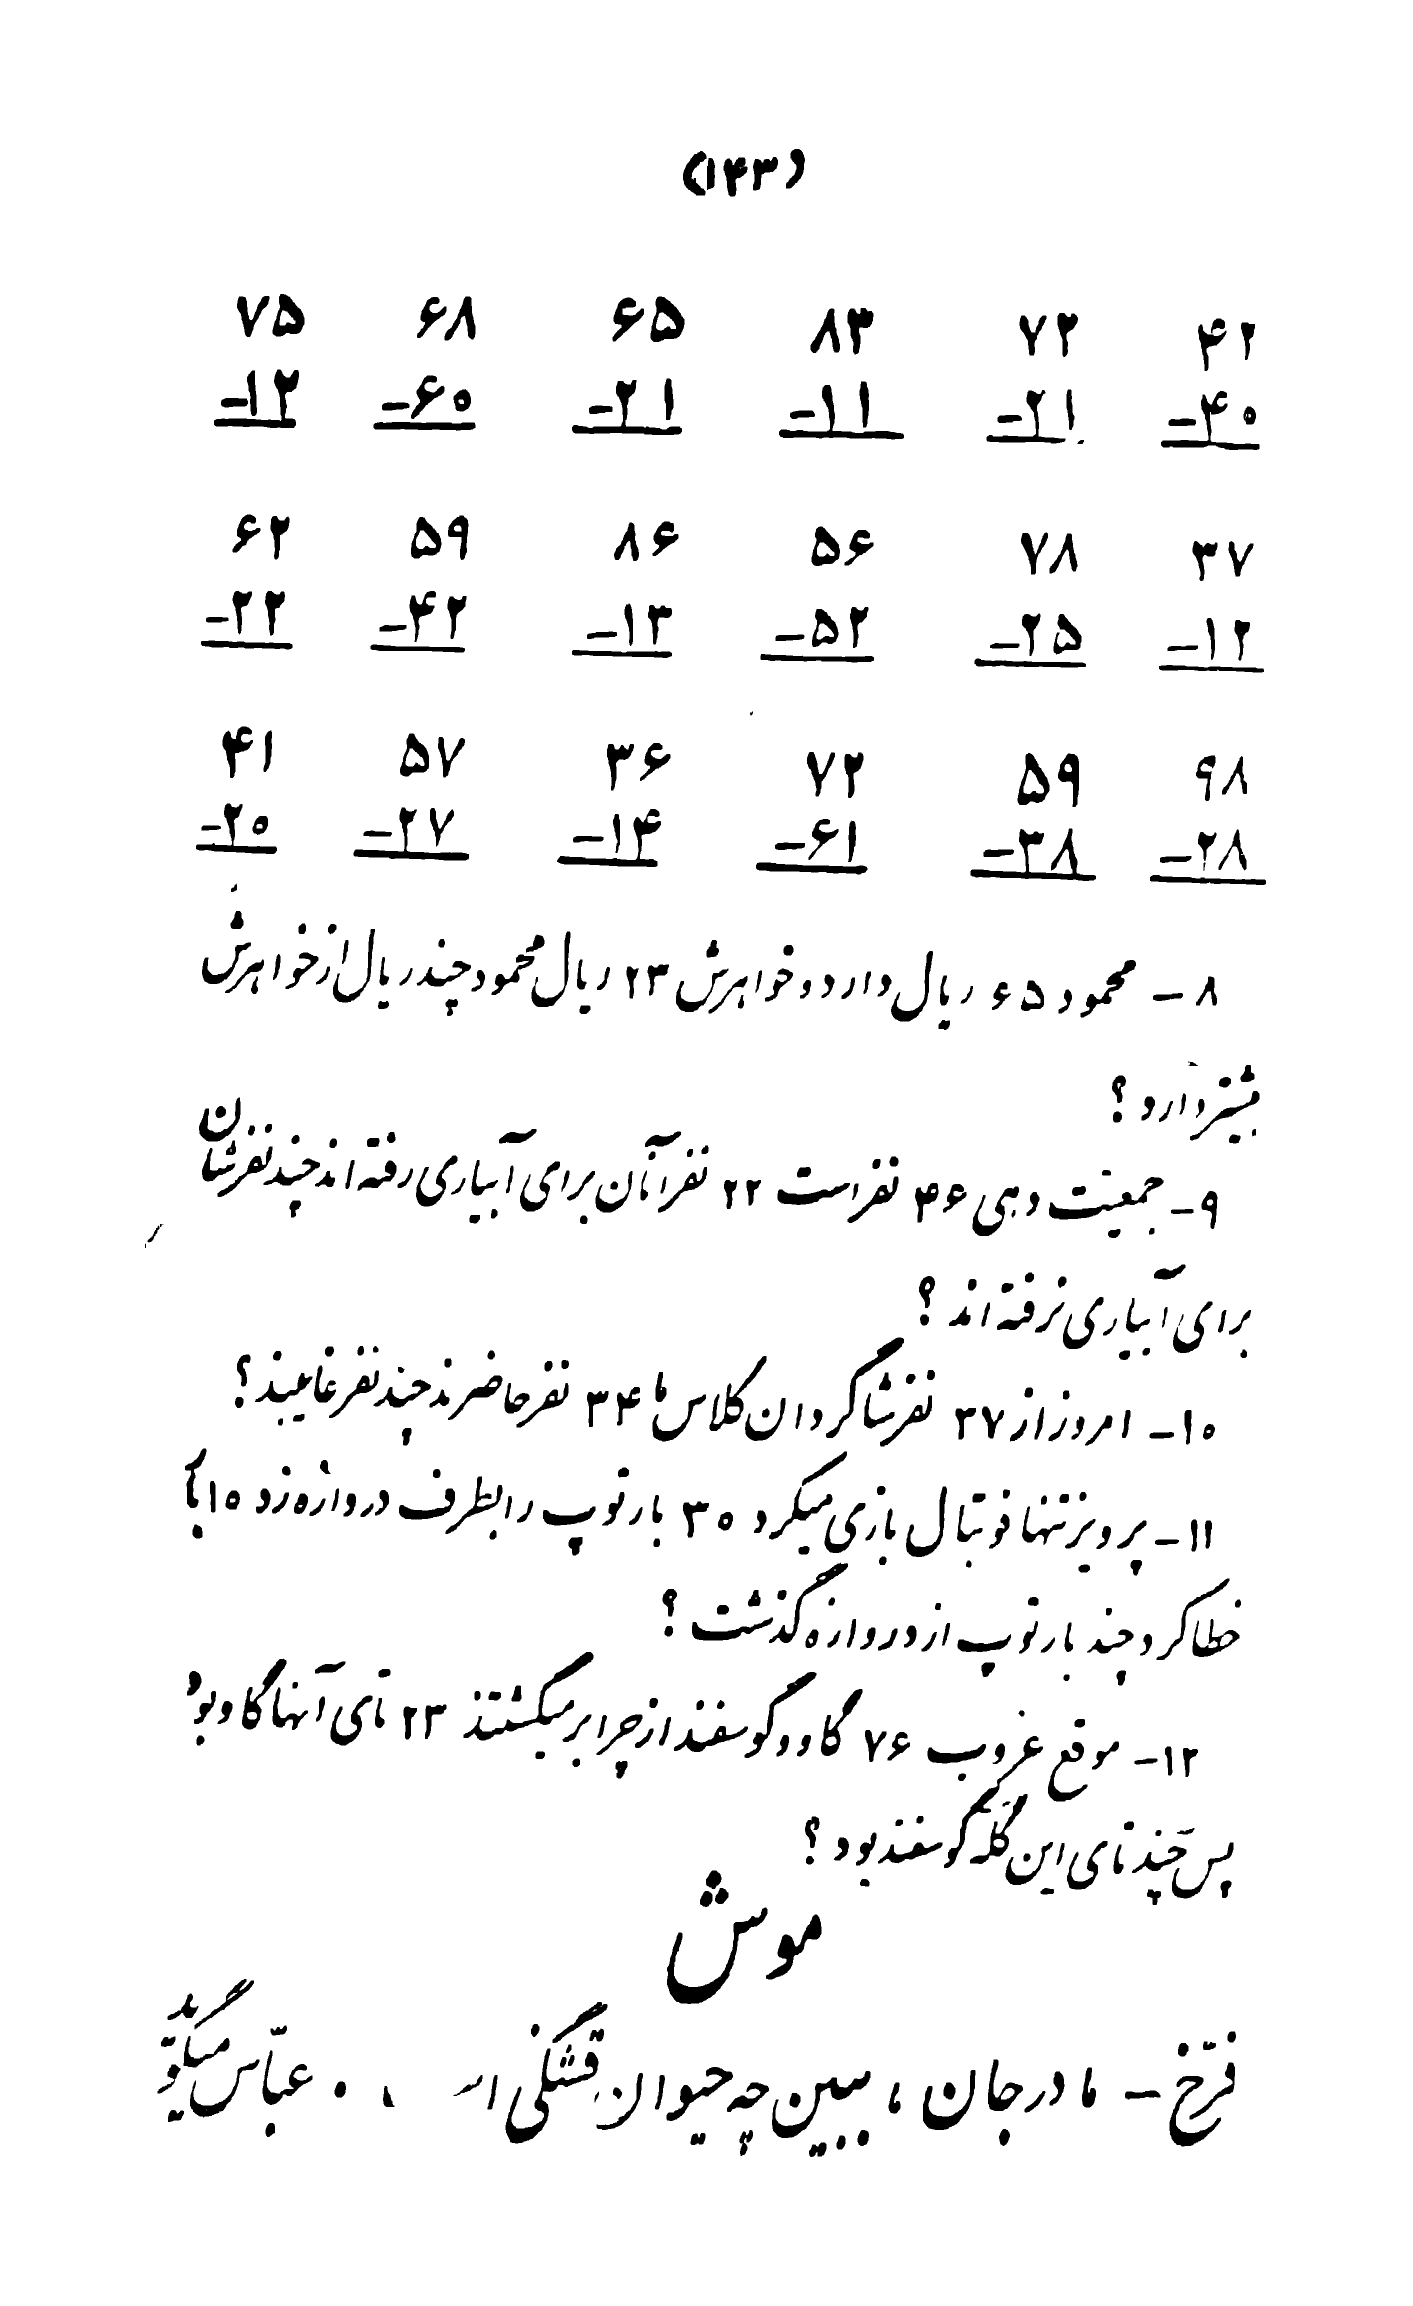 (۱۴۳)
۷۵ ۶۸ ۶۵ ۸۳ ۷۲ ۴۲
-۱۲ -۶۰ -۲۱ -۱۱ -۲۱ -۴۰
۶۲ ۵۹ ۸۶ ۵۶ ۷۸ ۳۷
-۲۲ -۴۲ -۱۳ -۵۲ -۲۵ -۱۲
۴۱ ۵۷ ۳۶ ۷۲ ۵۹ ۹۸
-۲۰ -۲۷ -۱۴ -۶۱ -۳۸ -۲۸
۸ - محمود ۶۵ ریال دارد و خواهرش ۲۳ ریال محمود چند ریال از خواهرش
بیشتر دارد ؟
۹ - جمعیت دهی ۴۶ نفر است ۲۲ نفر آنان برای آبیاری رفته اند چند نفرشان
برای آبیاری نرفته اند ؟
۱۰ - امروز از ۳۷ نفر شاگردان کلاس ما ۳۴ نفر حاضرند چند نفر غایبند ؟
۱۱ - پرویز تنها فوتبال بازی میکرد ۳۰ بار توپ را بطرف دروازه زد ۱۰ بار
خطا کرد چند بار توپ از دروازه گذشت ؟
۱۲ - موقع غروب ۷۶ گاو و گوسفند از چرا بر میگشتند ۲۳ تای آنها گاو بود
پس چند تای این گله گوسفند بود ؟
موش
فرّخ - مادر جان ، ببین چه حیوان قشنگی . عبّاس میگوید